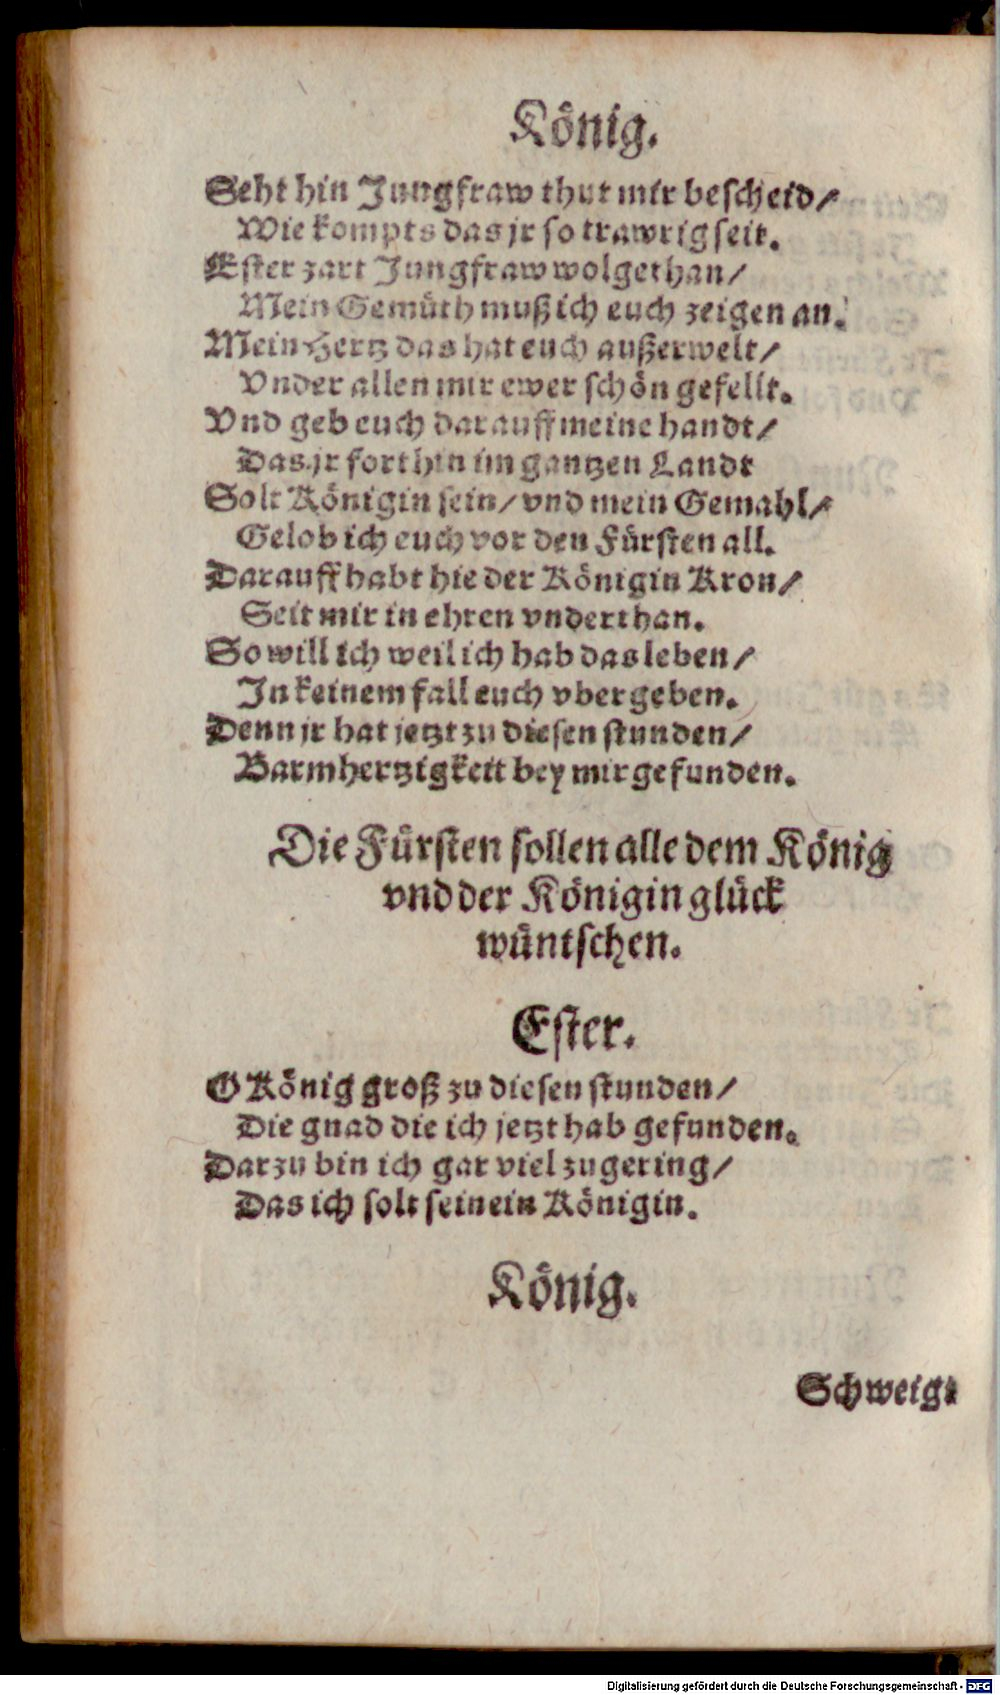 König.
Seht hin Jungfraw thut mir bescheid/
Wie kompts das jr so trawrig seit.
Ester zart Jungfraw wolgethan/
Mein Gemüth muß ich euch zeigen an.
Mein Hertz das hat euch außerwelt/
Vnder allen mir ewer schön gefellt.
Vnd geb euch darauff meine handt/
Das jr forthin im gantzen Landt
Solt Königin sein/ vnd mein Gemahl/
Gelob ich euch vor den Fürsten all.
Darauff habt hie der Königin Kron/
Seit mir in ehren vnderthan.
So will ich weil ich hab das leben/
In keinem fall euch vbergeben.
Denn jr hat jetzt zu diesen stunden/
Barmhertzigkeit bey mir gefunden.
Die Fürsten sollen alle dem König
vnd der Königin glück
wüntschen.
Ester.
O König groß zu diesen stunden/
Die gnad die ich jetzt hab gefunden.
Darzu bin ich gar viel zu gering/
Das ich solt sein ein Königin.
König.
Schweig
Digitalisierung gefördert durch die Deutsche Forschungsgemeinschaft - DFG